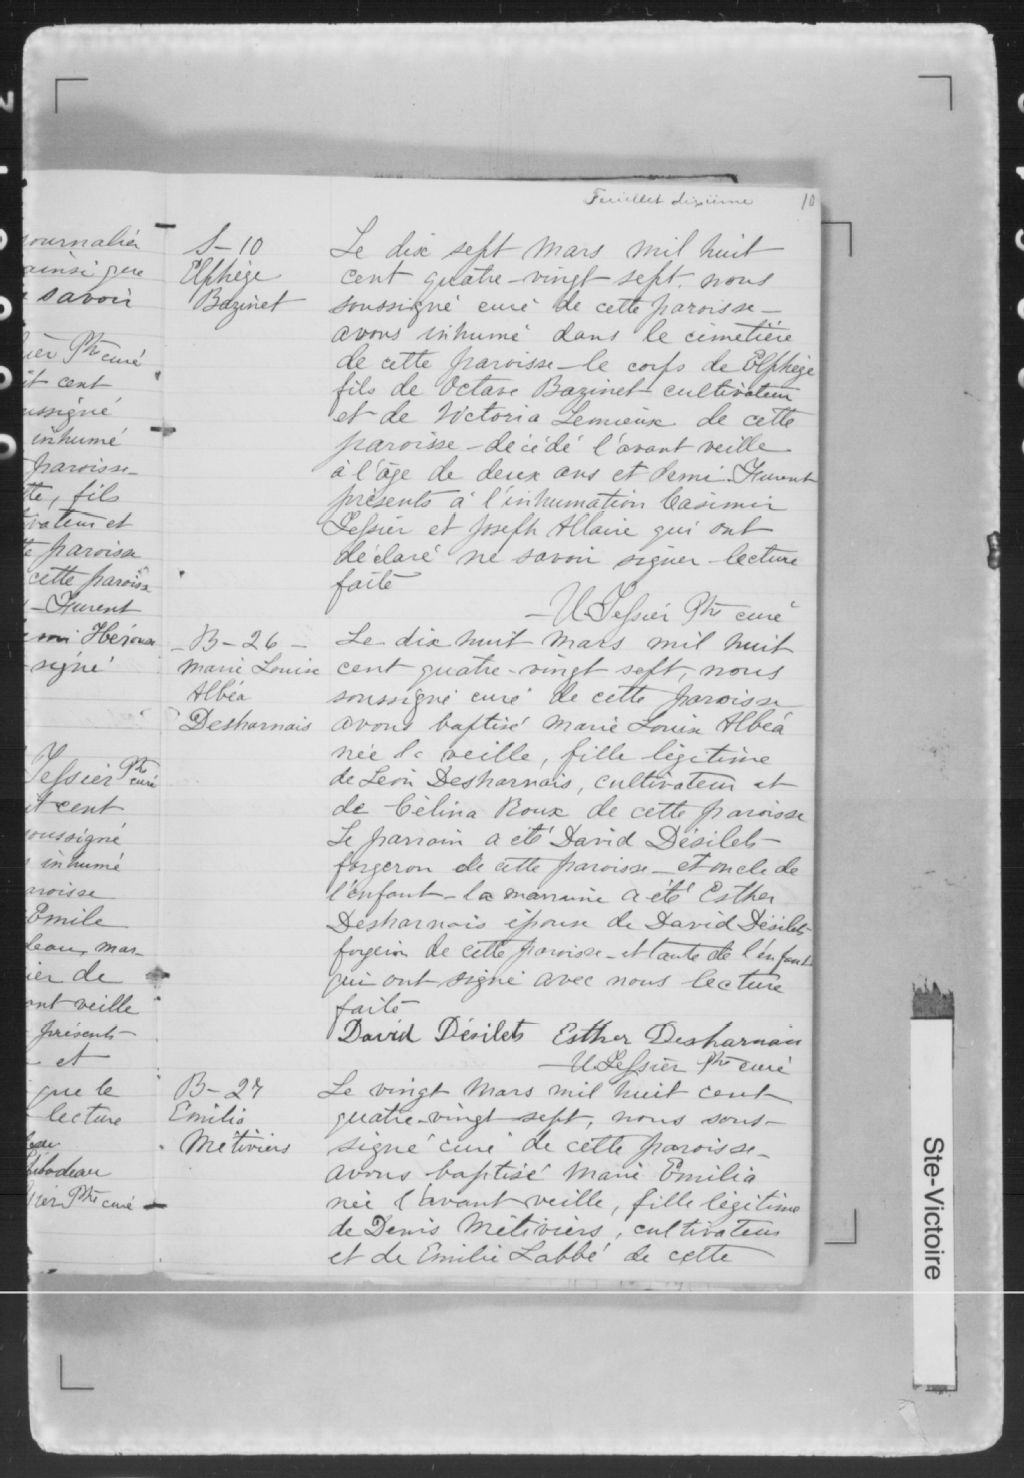 Feuillet dixième 10
journalier
ainsi que
savoir
Ptre curé
it cent
ussigné
inhumé
paroisse
tte, fils
ivateur et
te paroisse
cette paroisse
- Furent
Héroux
signé
Tessier Ptre curé
it cent
soussigné
inhumé
aroisse
Emile
deau, mar-
ier de
ant veille
présents
et
que le
lecture
ibodeau
sier Ptre curé
S-10
Elphège
Bazinet
Le dix sept Mars mil huit
cent quatre-vingt sept, nous
soussigné curé de cette paroisse-
avons inhumé dans le cimetière
de cette paroisse-le corps de Elphège
fils de Octave Bazinet cultivateur
et de Victoria Lemieux de cette
paroisse-décédé l'avant veille
à l'âge de deux ans et demi. Furent
présents à l'inhumation Casimir
Tessier et Joseph Allaire qui ont
déclaré ne savoir signer-lecture
faite
U Tessier Ptre curé
-B-26-
Marie Louise
Albéa
Desharnais
Le dix huit Mars mil huit
cent quatre-vingt sept, nous
soussigné curé de cette paroisse
avons baptisé Marie Louise Albéa
née la veille, fille légitime
de Léon Desharnais, cultivateur et
de Célina Roux de cette paroisse
Le parrain a été David Désilets
forgeron de cette paroisse-et oncle de
l'enfant-la marraine a été Esther
Desharnais épouse de David Désilets
forgeron de cette paroisse-et tante de l'enfant
qui ont signé avec nous lecture
faite
David Désilets Esther Desharnais
U Tessier Ptre curé
B-27
Emilia
Métiviers
Le vingt Mars mil huit cent
quatre-vingt-sept, nous sous-
signé curé de cette paroisse-
avons baptisé Marie Emilia
née l'avant veille, fille légitime
de Denis Métiviers, cultivateur
et de Emilie Labbé de cette
Ste-Victoire